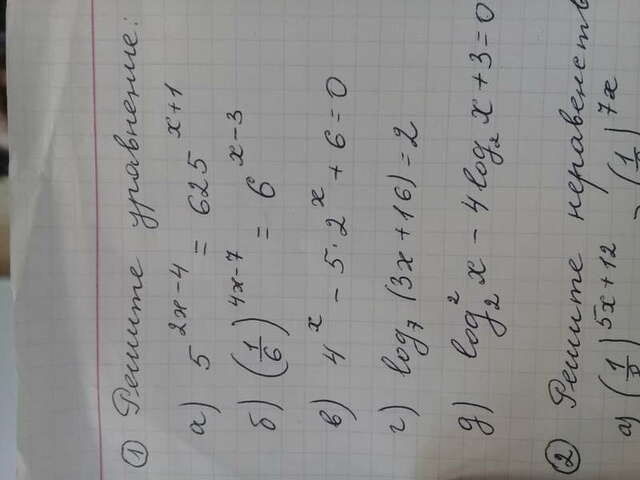 ① Решите уравнение:
а) 5^(2x-4) = 625^(x+1)
б) (1/6)^(4x-7) = 6^(x-3)
в) 4^x - 5·2^x + 6 = 0
г) log₇ (3x+16) = 2
д) log₂² x - 4 log₂ x + 3 = 0
② Решите неравенств